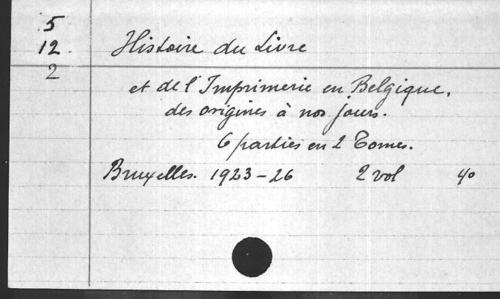 5
12. Histoire du Livre
2
et de l'Imprimerie en Belgique,
des origines à nos jours.
6 parties en 2 Tomes.
Bruxelles. 1923-26 2 vol 4o